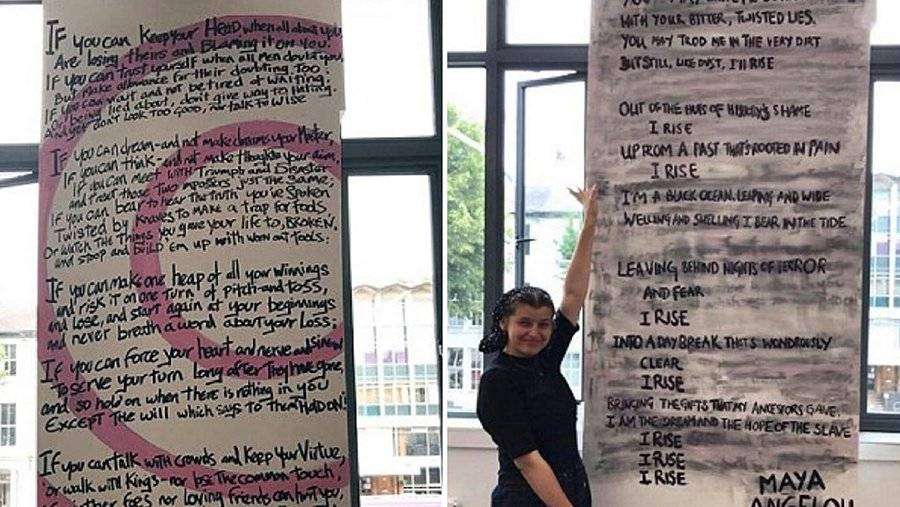 IF you can Keep your HEAD when all about you,
Are losing theirs and Blaming it on You.
If you can trust yourself when all Men doubt you,
But Make allowance for their doubting Too:
If you can wait and not be tired of waiting
or being lied about, don't give way to Hating.
and yet don't Look Too GOOD, nor talk To Wise
IF you can dream-and not make dreams your Master,
If you can think-and not make thoughts your aim,
if you can meet with Triumph and Disaster
and treat those Two imposters just the Same;
If you can bear to hear the Truth you've Spoken
Twisted by Knaves to MAKE a trap for fools
Or watch the Things you gave your life to, BROKEN
and stoop and BUILD 'EM up with worn out tools:
If you can make one heap of all your winnings
and risk it on one Turn of pitch-and toss,
and Lose, and start again at your beginnings
and never breath a word about your Loss;
If you can force your heart and nerve and sinew
To serve your turn Long after They have gone,
and so hold on when there is nothing in you
EXCEPT The will which says to Them HOLD ON!
If you can talk with crowds and keep your Virtue,
or walk with Kings-nor lose The common Touch,
foes nor loving friends can hurt you,
WITH YOUR BITTER, TWISTED LIES.
YOU MAY TROD ME IN THE VERY DIRT
BUT STILL, LIKE DUST, I'LL RISE
OUT OF THE HUTS OF HISTORY'S SHAME
I RISE
UP FROM A PAST THAT'S ROOTED IN PAIN
I RISE
I'M A BLACK OCEAN, LEAPING AND WIDE
WELLING AND SWELLING I BEAR IN THE TIDE
LEAVING BEHIND NIGHTS OF TERROR
AND FEAR
I RISE
INTO A DAY BREAK THAT'S WONDROUSLY
CLEAR
I RISE
BRINGING THE GIFTS THAT MY ANCESTORS GAVE,
I AM THE DREAM AND THE HOPE OF THE SLAVE
I RISE
I RISE
I RISE
MAYA
ANGELOU